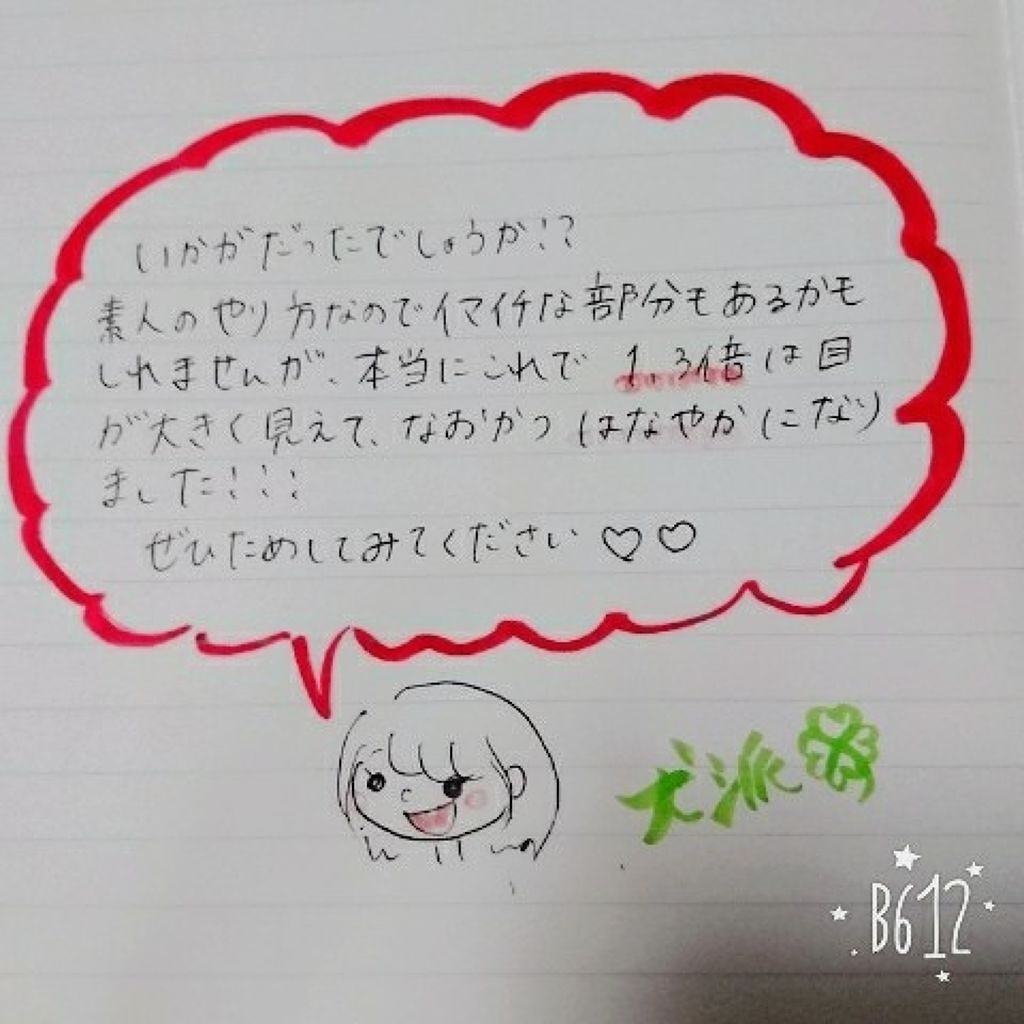 いかがだったでしょうか!?
素人のやり方なのでイマイチな部分もあるかも
しれませんが、本当にこれで 1.3倍は目
が大きく見えて、なおかつ はなやかになり
ました!!!
ぜひためしてみてください♡♡
犬派
B612